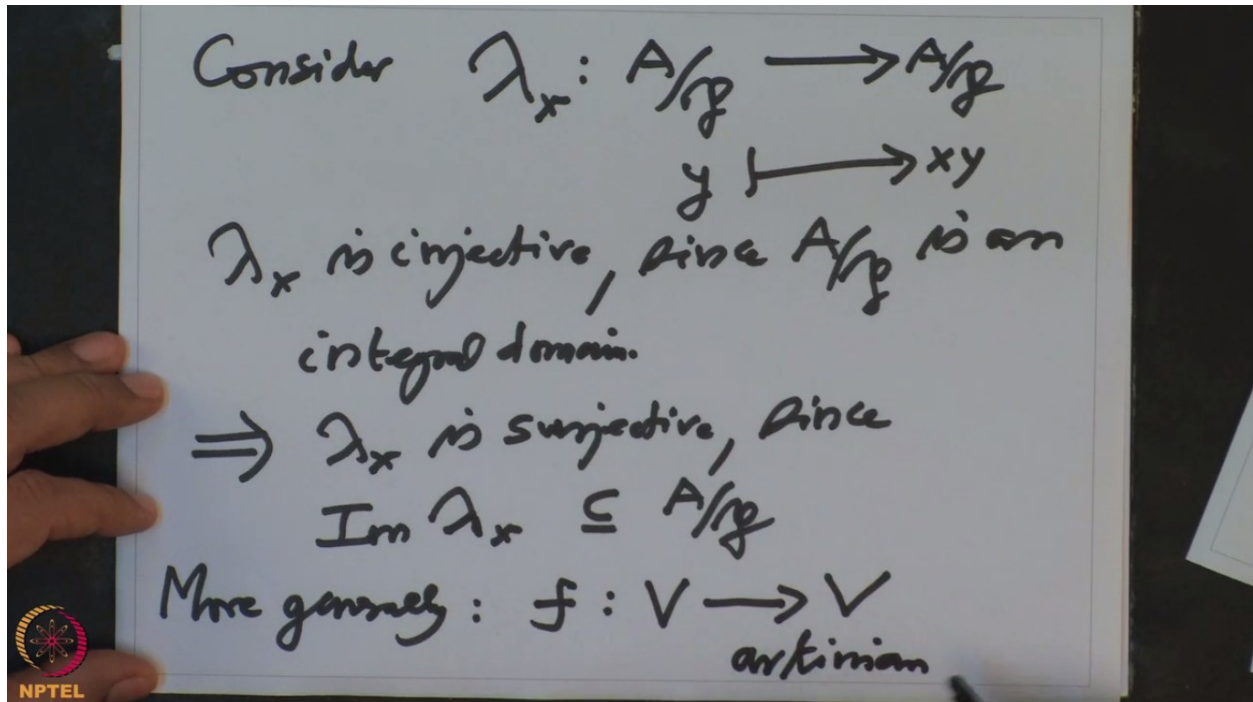 Consider λₓ : A/𝔭 ⟶ A/𝔭
y ⟼ xy
λₓ is injective, since A/𝔭 is an
integral domain.
⟹ λₓ is surjective, since
Im λₓ ⊆ A/𝔭
More generally : f : V ⟶ V
artinian
NPTEL